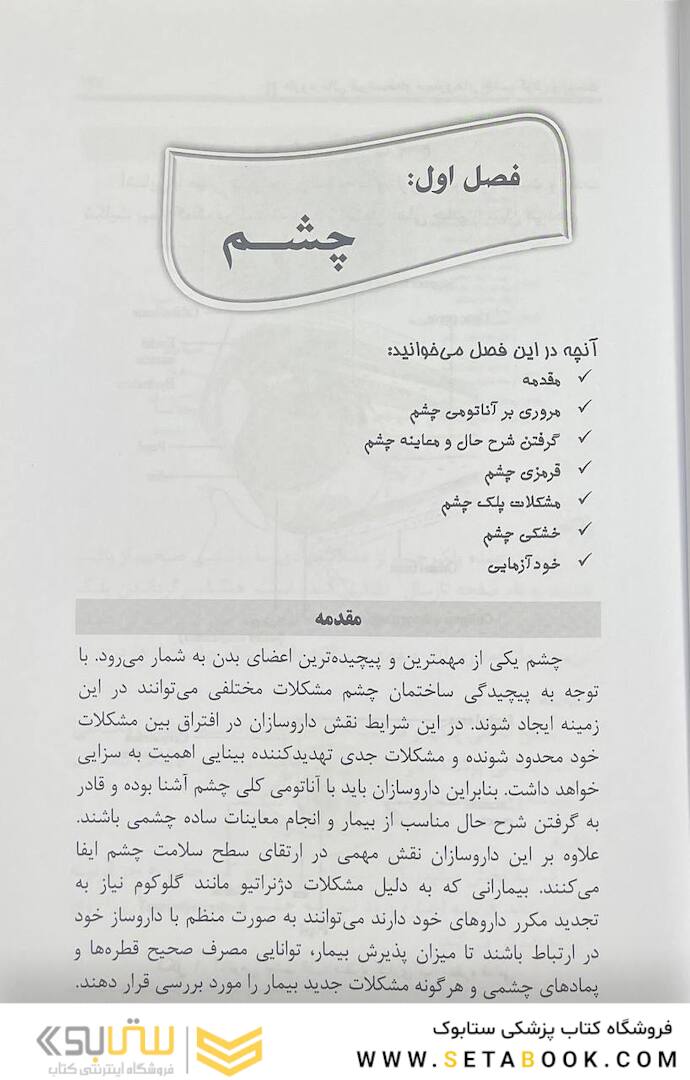 فصل اول:
چشم
آنچه در این فصل می‌خوانید:
✓ مقدمه
✓ مروری بر آناتومی چشم
✓ گرفتن شرح حال و معاینه چشم
✓ قرمزی چشم
✓ مشکلات پلک چشم
✓ خشکی چشم
✓ خودآزمایی
مقدمه
چشم یکی از مهمترین و پیچیده‌ترین اعضای بدن به شمار می‌رود. با
توجه به پیچیدگی ساختمان چشم مشکلات مختلفی می‌توانند در این
زمینه ایجاد شوند. در این شرایط نقش داروسازان در افتراق بین مشکلات
خود محدود شونده و مشکلات جدی تهدیدکننده بینایی اهمیت به سزایی
خواهد داشت. بنابراین داروسازان باید با آناتومی کلی چشم آشنا بوده و قادر
به گرفتن شرح حال مناسب از بیمار و انجام معاینات ساده چشمی باشند.
علاوه بر این داروسازان نقش مهمی در ارتقای سطح سلامت چشم ایفا
می‌کنند. بیمارانی که به دلیل مشکلات دژنراتیو مانند گلوکوم نیاز به
تجدید مکرر داروهای خود دارند می‌توانند به صورت منظم با داروساز خود
در ارتباط باشند تا میزان پذیرش بیمار، توانایی مصرف صحیح قطره‌ها و
پمادهای چشمی و هرگونه مشکلات جدید بیمار را مورد بررسی قرار دهند.
فروشگاه کتاب پزشکی ستابوک
WWW.SETABOOK.COM
ستابوک
فروشگاه اینترنتی کتاب